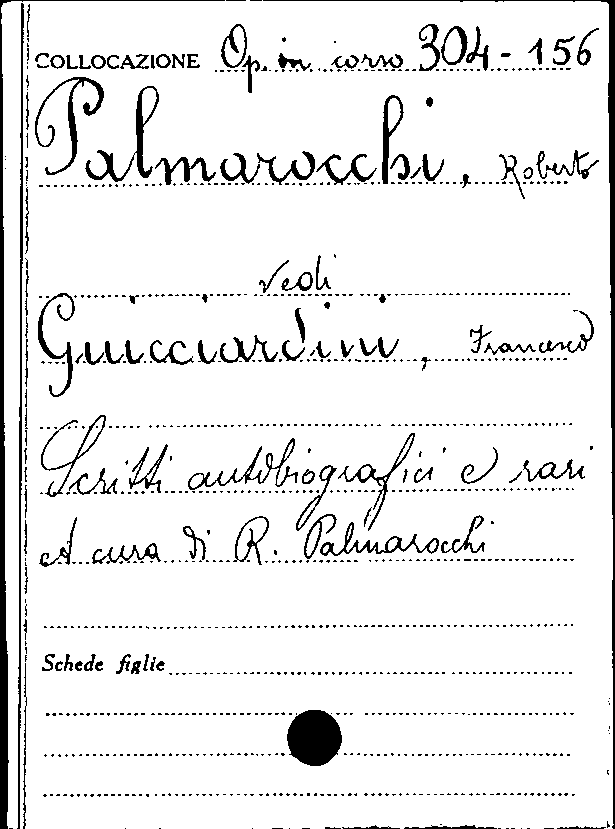 COLLOCAZIONE Op. in corso 304-156
Palmarocchi, Roberto
vedi
Guicciardini, Francesco
Scritti autobiografici e rari
A cura di R. Palmarocchi
Schede figlie